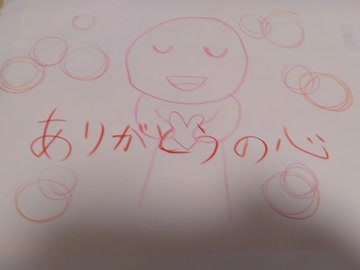 ありがとうの心